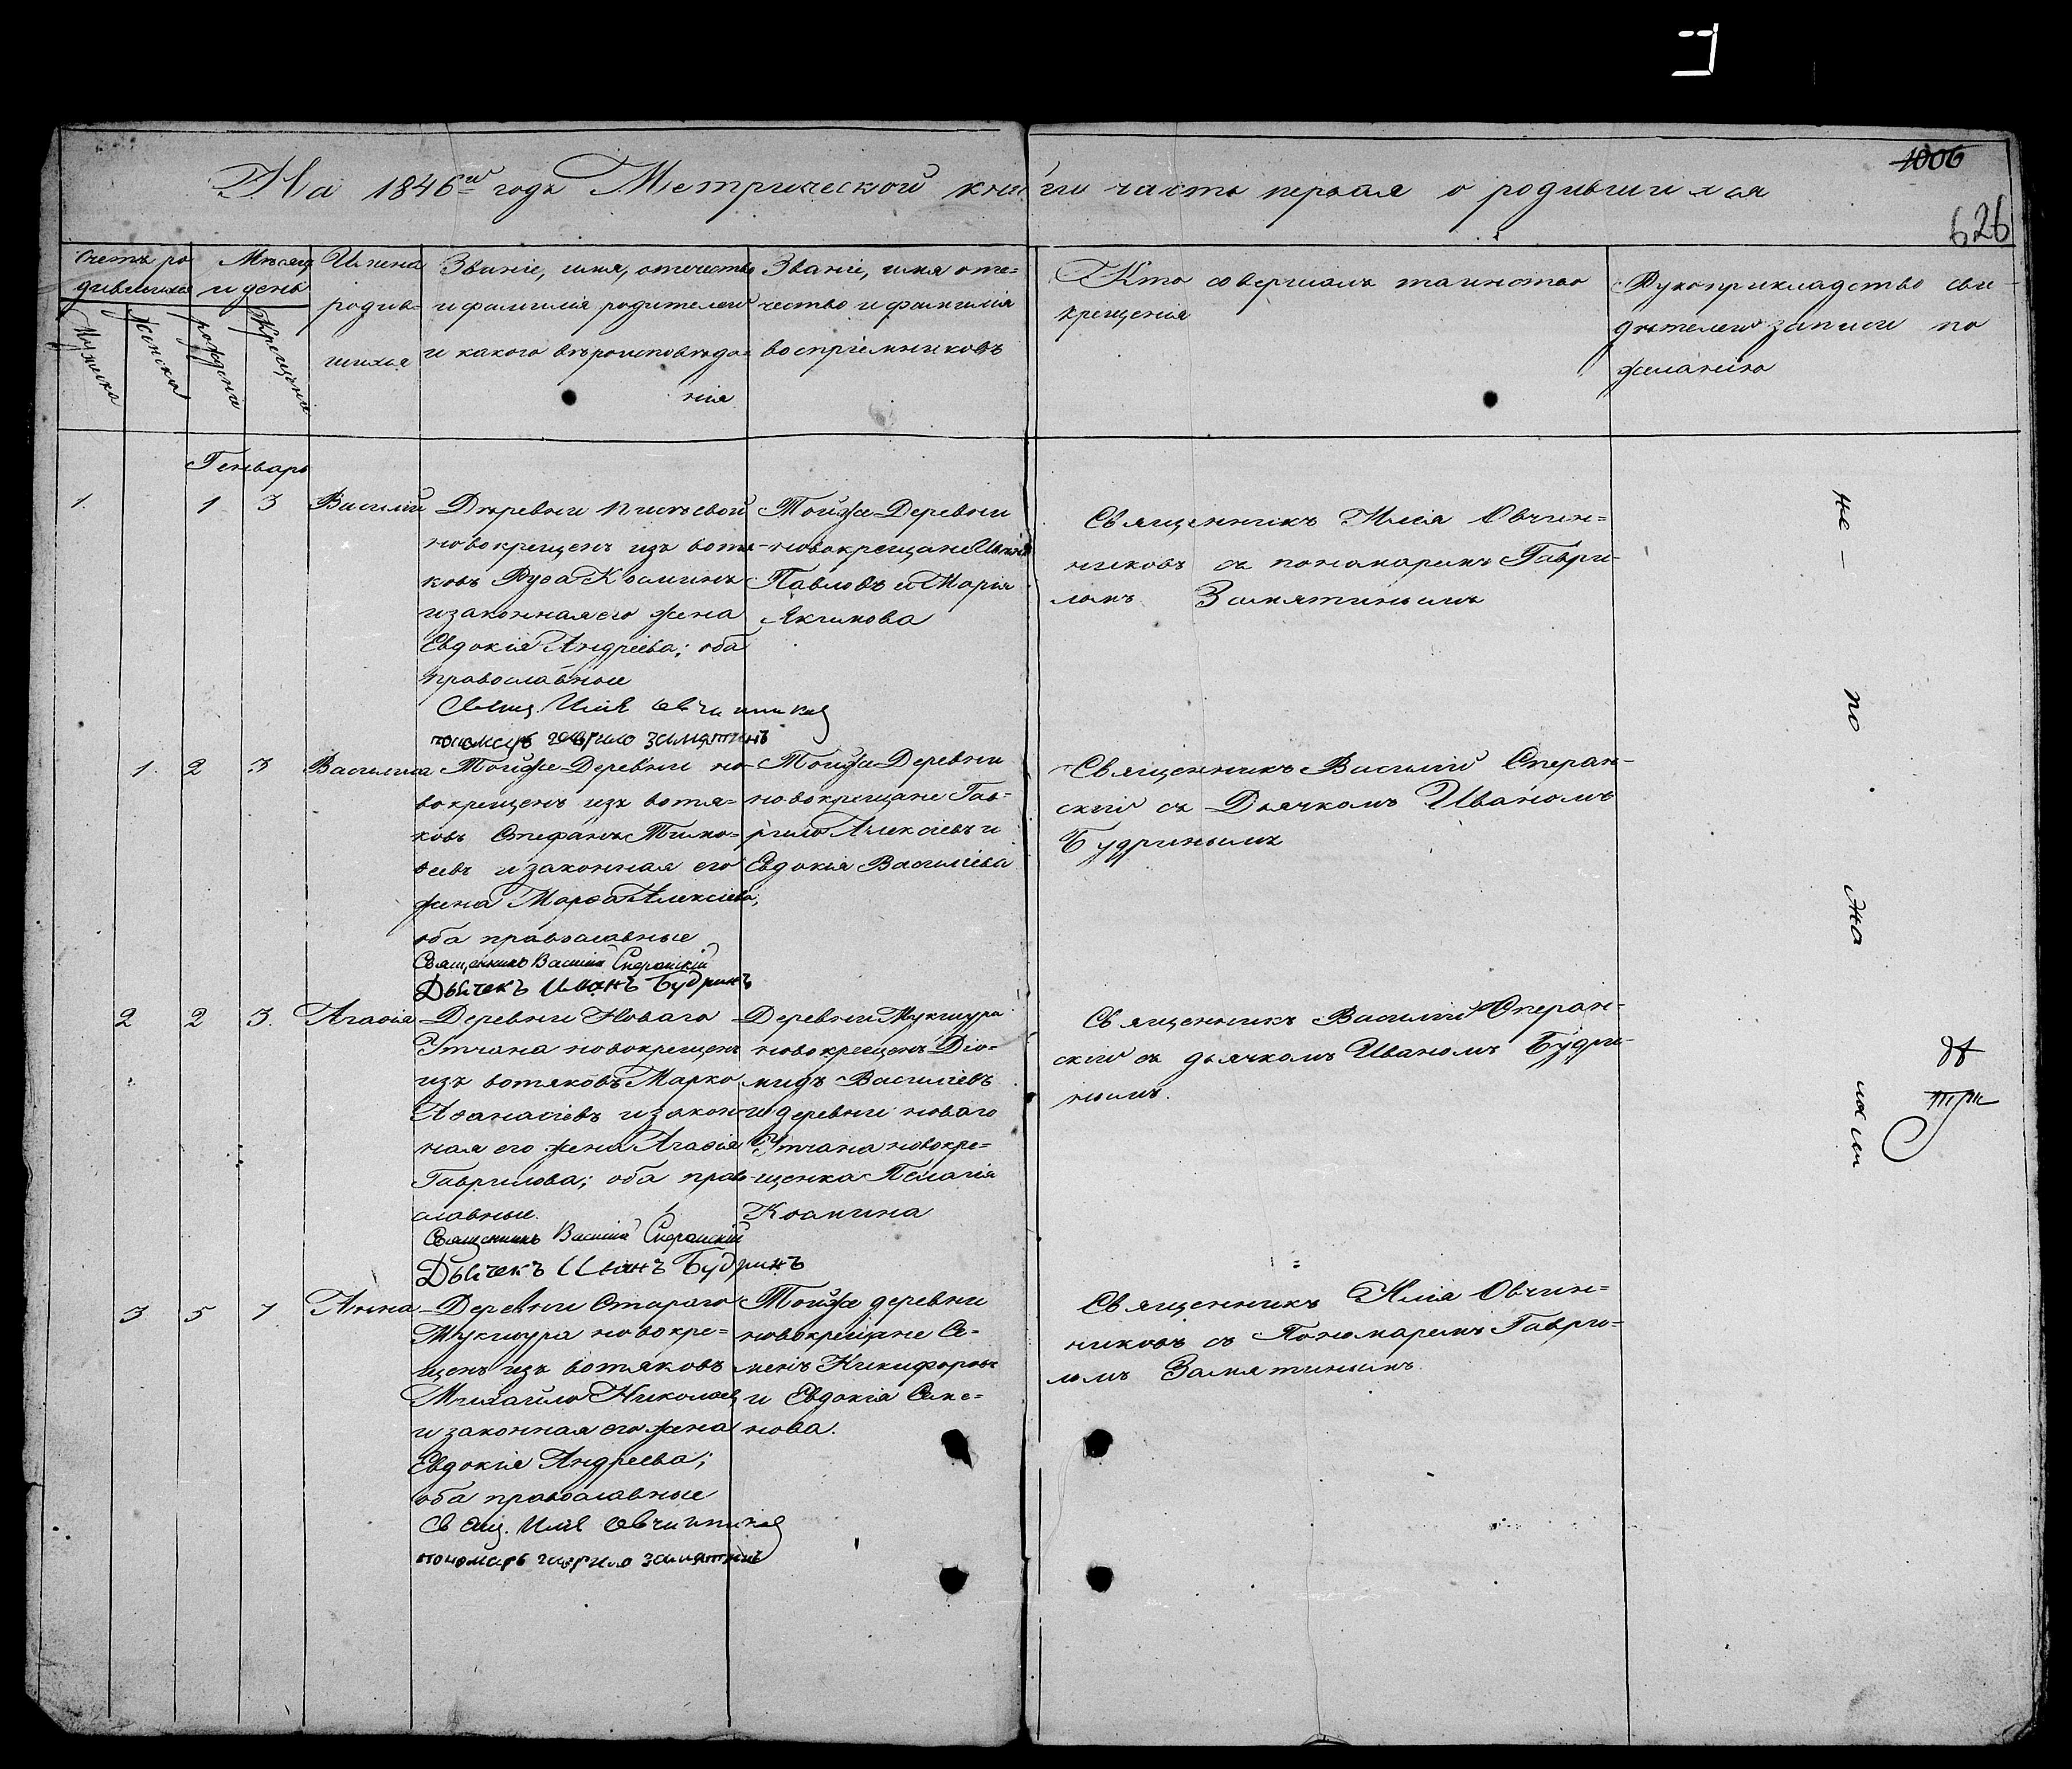 1006
На 1846й годъ Метрической книги часть первая о родившихся
626
Счетъ ро
дившихся
Мѣсяцъ
и день
Мужска
Женска
рожденія
Крещенія
Имена
родив-
шихся
Званіе, имя, отечество
и фамилія родителей
и какого вѣроисповѣда-
нія
Званіе, имя оте-
чество и фамилія
воспріемниковъ
Кто совершалъ таинство
крещенія
Рукоприкладство сви-
дѣтелей записи по
желанію
Генварь
1. 1 3 Василій
Деревни
новокрещенъ изъ вотя-
ковъ Ѳуѳа Козминъ
и законная его жена
Евдокія Андреева; оба
православные
Свящ. Илія Овчинников
пономарь гаврило замятинъ
Тойже Деревни
новокрещане
Павловъ и Марія
Якимова
Священникъ Илія Овчин=
никовъ съ пономаремъ Гаври-
ломъ Замятинымъ
1. 2 3 Василиса
Тойже Деревни но-
вокрещенъ изъ вотя=
ковъ Стефанъ Тимо-
ѳеевъ и законная его
жена Марѳа Алексіева;
оба православные
Священникъ Василій Сперанскій
Дьячекъ Иванъ Будринъ
Тойже Деревни
новокрещане Гав-
рило Алексіевъ и
Евдокія Василіева
Священникъ Василій Сперан-
скій съ Дьячкомъ Иваномъ
Будринымъ
2 2 3. Агаѳія
Деревни Новаго
Утчана новокрещенъ
изъ вотяковъ Марко
Аѳанасіевъ и закон-
ная его жена Агаѳія
Гаврилова; оба право
славные.
Священникъ Василій Сперанскій
Дьячекъ Иванъ Будринъ
Деревни Мукшура
новокрещенъ Діо=
мидъ Василіевъ
и деревни новаго
Утчана новокре=
щенка Пелагія
Козмина
Священникъ Василій Сперан-
скій съ дьячкомъ Иваномъ Будри-
нымъ.
3 5 7 Анна
Деревни Стараго
Мукшура новокре=
щенъ изъ вотяковъ
Михаило Николаевъ
и законная его жена
Евдокія Андреева;
оба православные
Свящ. Илія Овчинников
пономарь гаврило замятинъ
Тойже деревни
новокрещане Се-
менъ Никифоровъ
и Евдокія Семе=
нова.
Священникъ Илія Овчин=
никовъ съ Пономаремъ Гаври-
ломъ Замятинымъ.